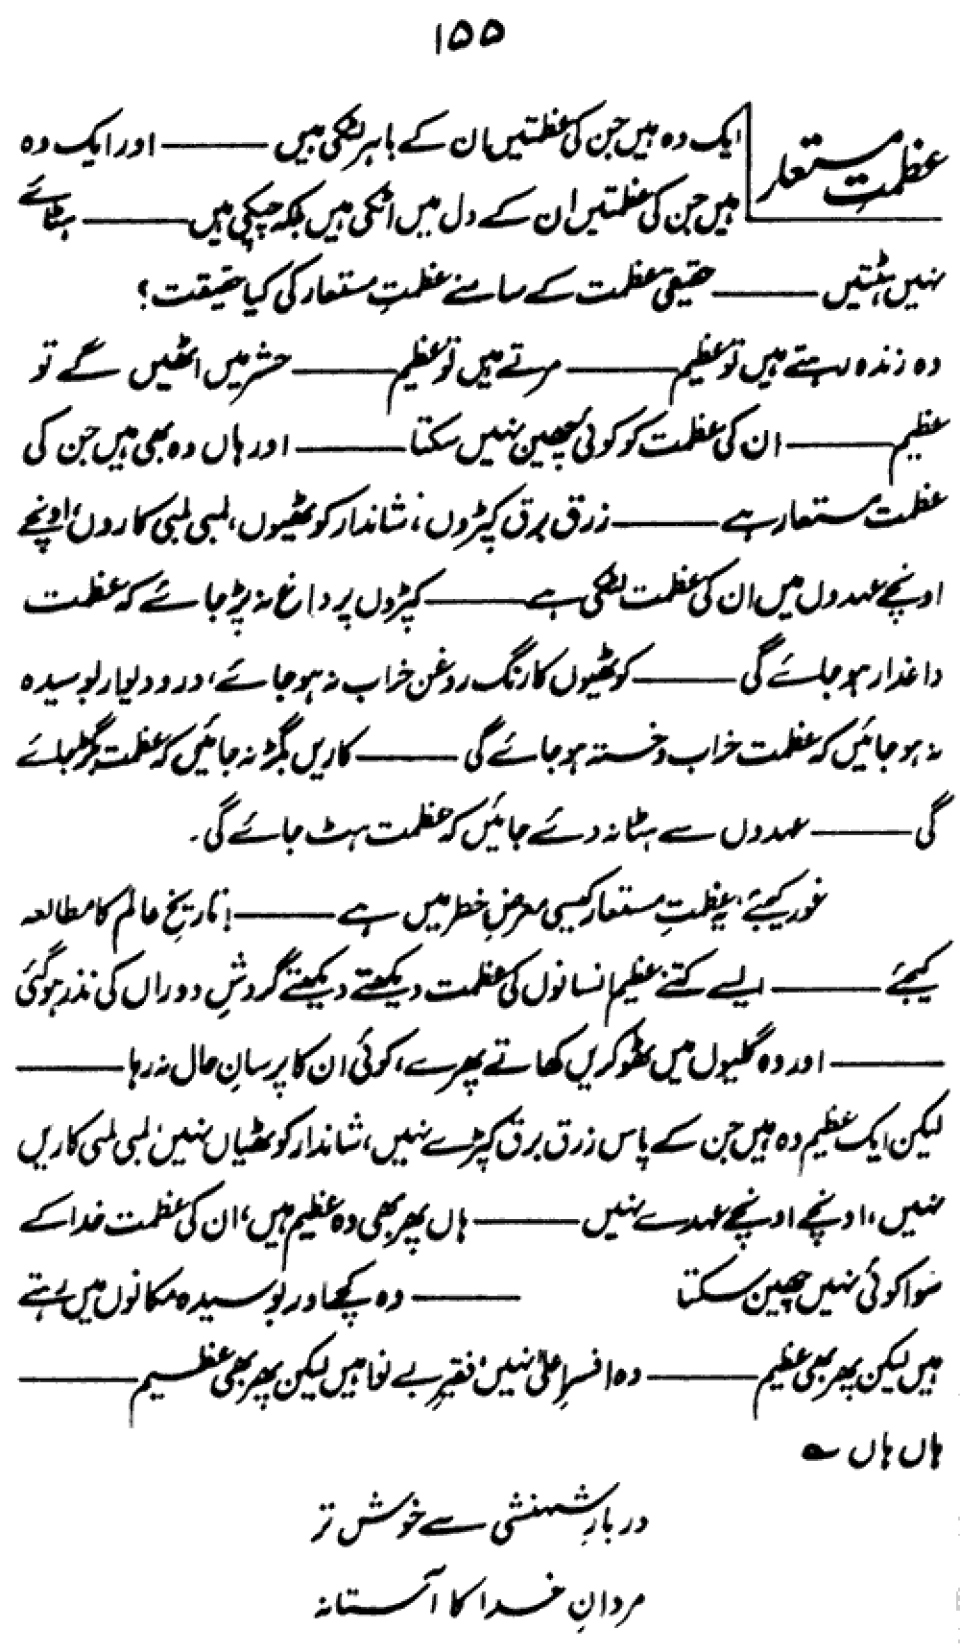 ۱۵۵
عظمتِ مستعار
ایک وہ ہیں جن کی عظمتیں ان کے باہر لٹکی ہیں ——— اور ایک وہ
ہیں جن کی عظمتیں ان کے دل میں اٹکی ہیں بلکہ چپکی ہیں ——— ہٹائے
نہیں ہٹتیں ——— حقیقی عظمت کے سامنے عظمتِ مستعار کی کیا حقیقت؟
وہ زندہ رہتے ہیں تو عظیم ——— مرتے ہیں تو عظیم ——— حشر میں اٹھیں گے تو
عظیم ——— ان کی عظمت کو کوئی چھین نہیں سکتا ——— اور ہاں وہ بھی ہیں جن کی
عظمت مستعار ہے ——— زرق برق کپڑوں، شاندار کوٹھیوں، لمبی لمبی کاروں، اونچے
اونچے عہدوں میں ان کی عظمت لٹکی ہے ——— کپڑوں پر داغ نہ پڑ جائے کہ عظمت
داغدار ہو جائے گی ——— کوٹھیوں کا رنگ روغن خراب نہ ہو جائے، در و دیوار بوسیدہ
نہ ہو جائیں کہ عظمت خراب و خستہ ہو جائے گی ——— کاریں بگڑ نہ جائیں کہ عظمت بگڑ جائے
گی ——— عہدوں سے ہٹا نہ دئے جائیں کہ عظمت ہٹ جائے گی۔
غور کیجئے، یہ عظمتِ مستعار کیسی معرضِ خطر میں ہے ——— ! تاریخِ عالم کا مطالعہ
کیجئے ——— ایسے کتنے عظیم انسانوں کی عظمت دیکھتے دیکھتے گردشِ دوراں کی نذر ہو گئی
——— اور وہ گلیوں میں ٹھوکریں کھاتے پھرے، کوئی ان کا پرسانِ حال نہ رہا ———
لیکن ایک عظیم وہ ہیں جن کے پاس زرق برق کپڑے نہیں، شاندار کوٹھیاں نہیں، لمبی لمبی کاریں
نہیں، اونچے اونچے عہدے نہیں ——— ہاں پھر بھی وہ عظیم ہیں، ان کی عظمت خدا کے
سوا کوئی نہیں چھین سکتا ——— وہ کچے اور بوسیدہ مکانوں میں رہتے
ہیں لیکن پھر بھی عظیم ——— وہ افسرِ اعلیٰ نہیں، فقیرِ بے نوا ہیں لیکن پھر بھی عظیم ———
ہاں ہاں ؎
دربارِ شہنشہی سے خوش تر
مردانِ خدا کا آستانہ